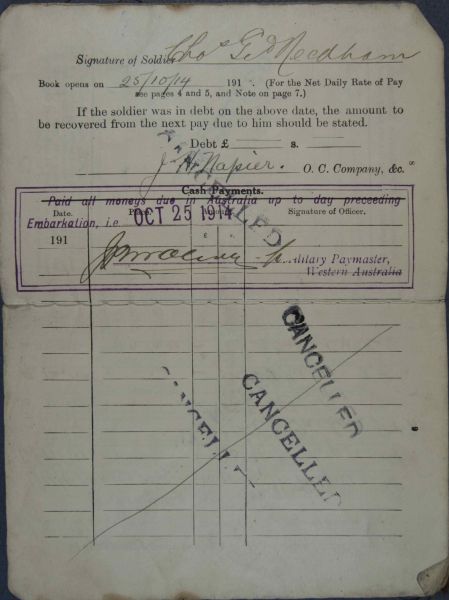 Signature of Soldier Thos G. Needham
Book opens on 25/10/14 191 . (For the Net Daily Rate of Pay
see pages 4 and 5, and Note on page 7.)
If the soldier was in debt on the above date, the amount to
be recovered from the next pay due to him should be stated.
Debt £ s.
J. H. Napier. O. C. Company, &c.
CANCELLED
Cash Payments.
Paid all moneys due in Australia up to day preceeding
Date. Place. Amount. Signature of Officer.
Embarkation, i.e OCT 25 1914
191 £
Military Paymaster,
Western Australia
CANCELLED
CANCELLED
CANCELLED